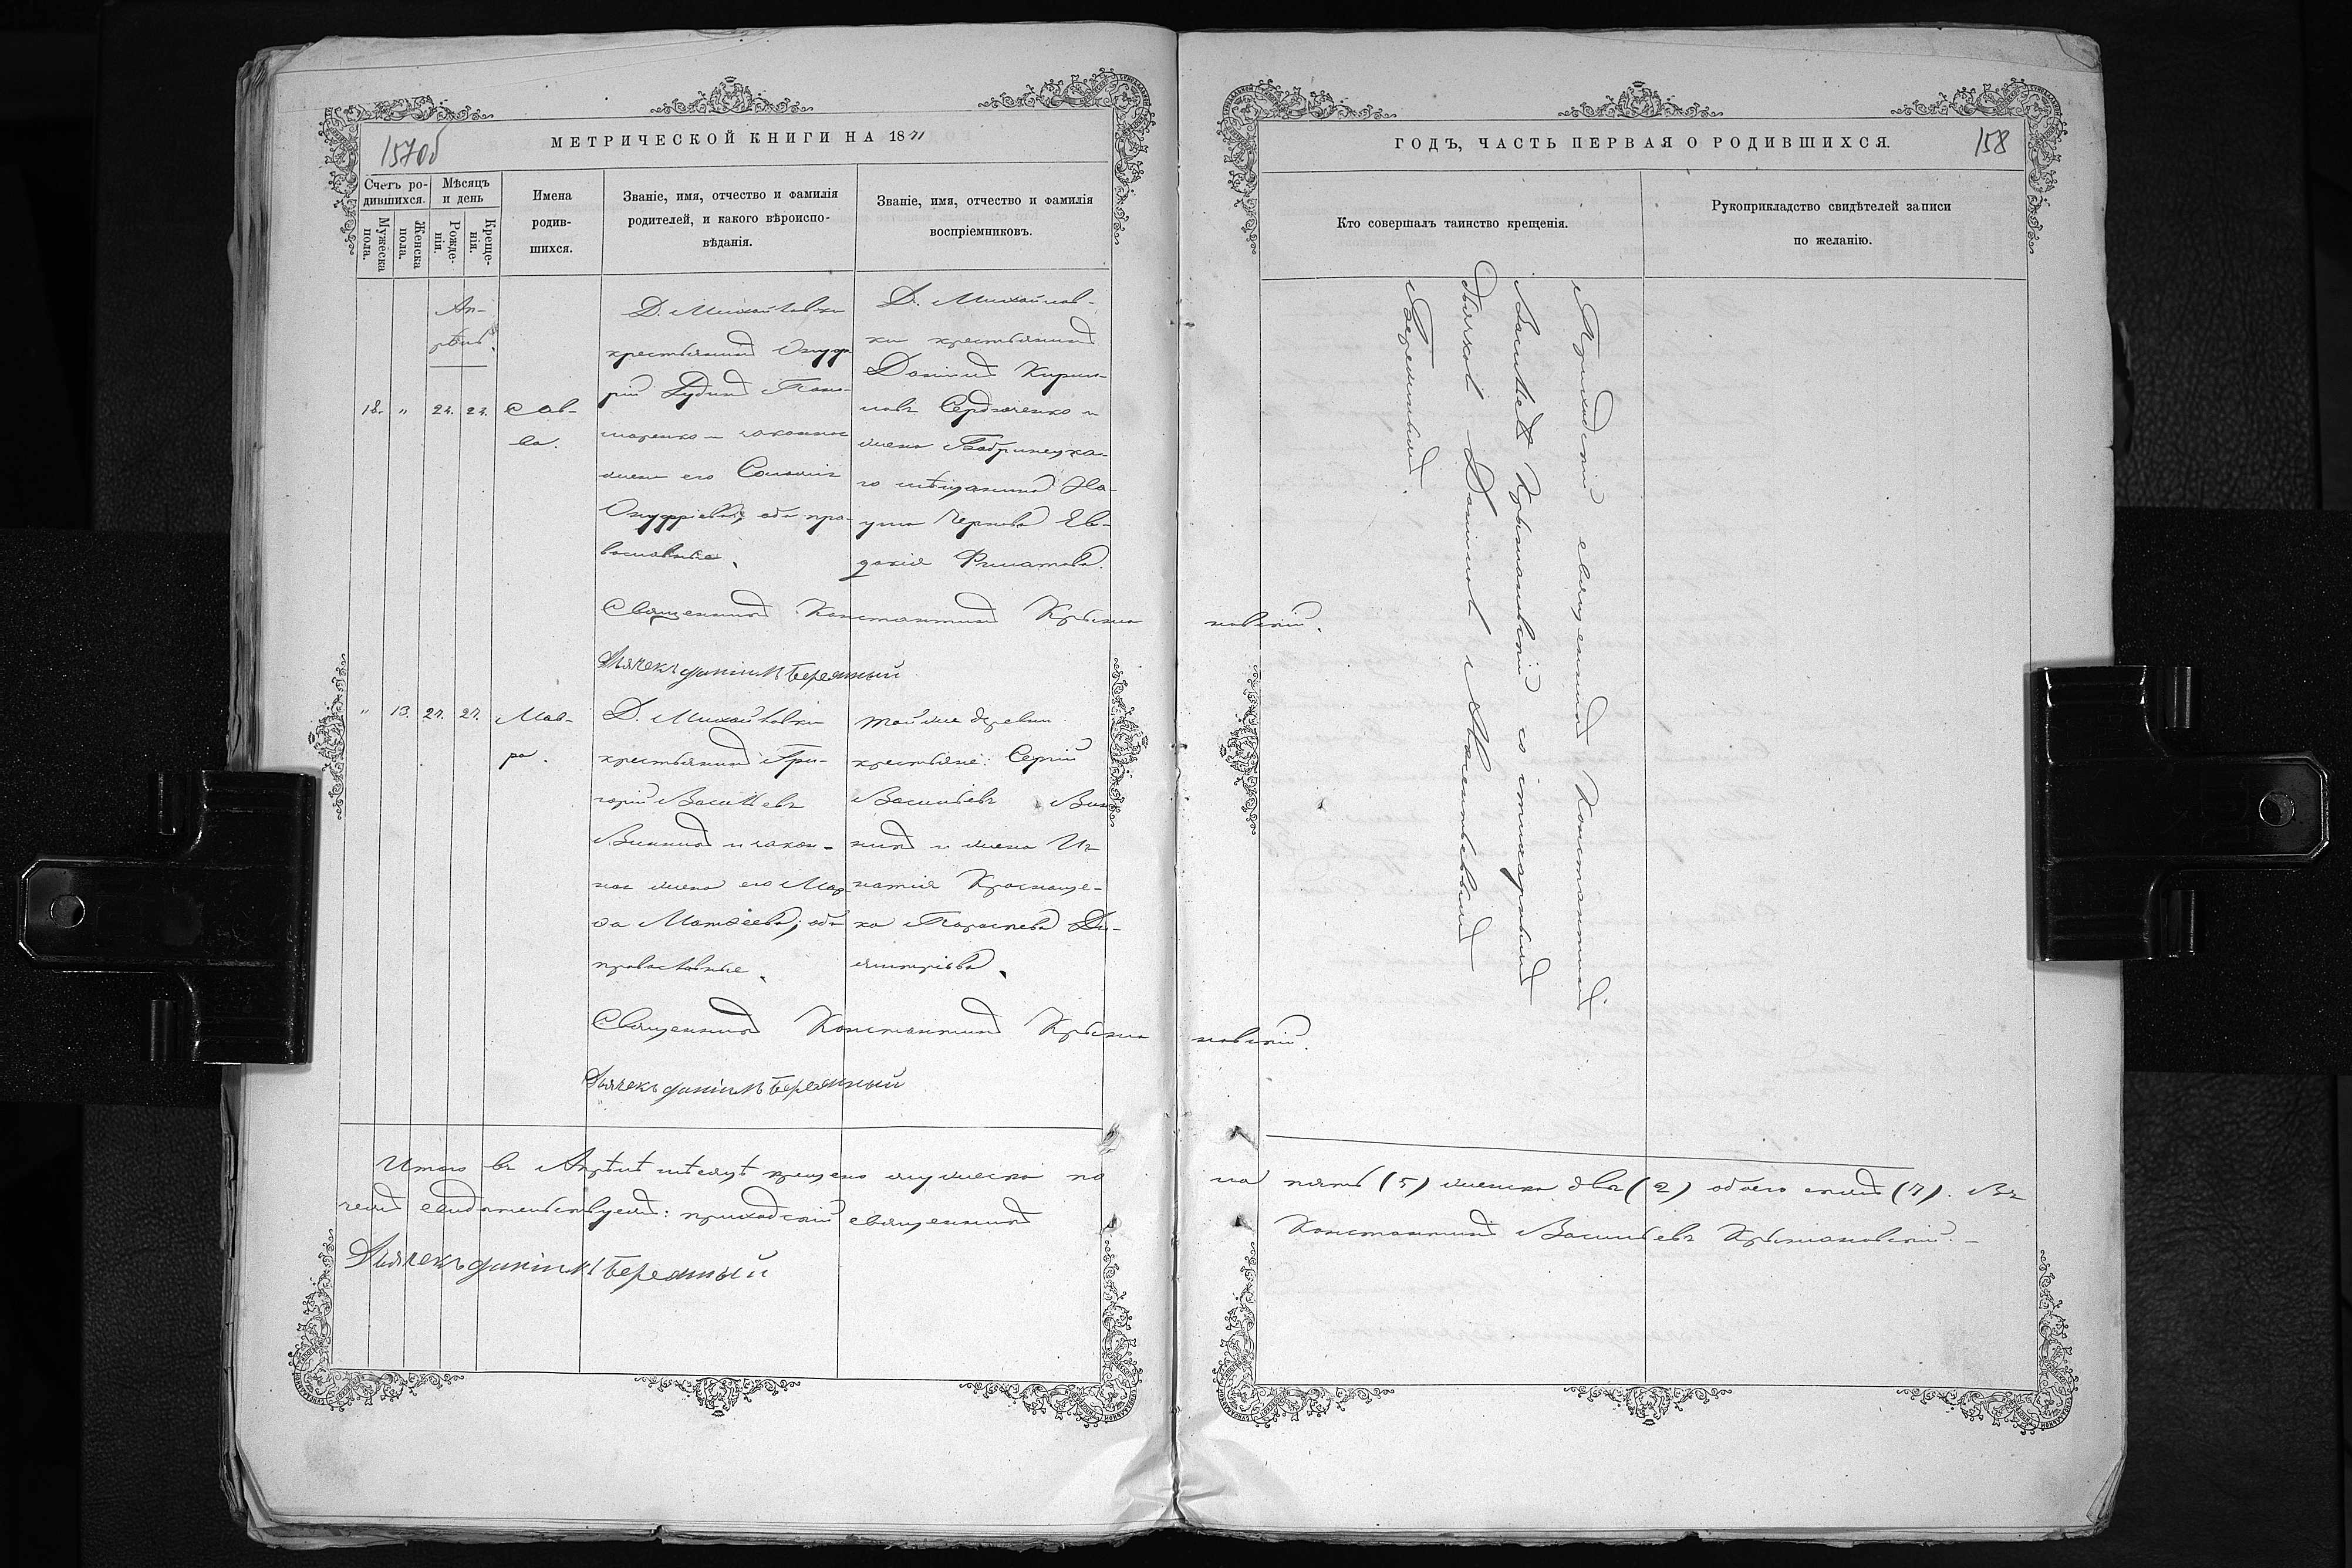 157об
МЕТРИЧЕСКОЙ КНИГИ НА 1871
Счетъ ро-
дившихся.
Мужеска
пола.
Женска
пола.
Мѣсяцъ
и день
Рожде-
нія.
Креще-
нія.
Имена
родив-
шихся.
Званіе, имя, отчество и фамилія
родителей, и какого вѣроиспо-
вѣданія.
Званіе, имя, отчество и фамилія
воспріемниковъ.
Ап-
рѣль.
18. " 24. 24.
Сав-
ва.
Д. Михайловки
крестьянинъ Онуф
рій
и законная
жена его Соломія
Онуфріева; оба пра-
вославные.
Д. Михайлов-
ки крестьянинъ
Даніилъ Кирил-
ловъ Сердюченко и
жена Бобринецка-
го мѣщанина На-
ума Чернова Ев-
докія Филатова.
Священникъ Константинъ Крыжа
новскій.
Дьячекъ Даніилъ Бережный
" 13. 27. 27.
Мав-
ра.
Д. Михайловки
крестьянинъ Гри-
горій Васильевъ
Винникъ и закон-
ная жена его Мар-
фа Матвѣева; оба
православные.
той же деревни
крестьяне: Сергій
Васильевъ Вин
никъ и жена Иг
натія Краснаще-
ка Параскева Ди-
митріева.
Священникъ Константинъ Крыжа
новскій.
Дьячекъ Даніилъ Бережный
Итого въ Апрѣлѣ мѣсяцѣ крещено мужеска по
ла пять (5) женска два (2) обоего семь (7). Въ
чемъ свидѣтельствуемъ: приходскій священникъ
Константинъ Васильевъ Крыжановскій.-
Дьячекъ Даніилъ Бережный
ГОДЪ, ЧАСТЬ ПЕРВАЯ О РОДИВШИХСЯ.
158
Кто совершалъ таинство крещенія.
Рукоприкладство свидѣтелей записи
по желанію.
Приходскій священникъ Константинъ
Васильевъ Крыжановскій со стихарнымъ
дьячкомъ Даніиломъ
Бережнымъ.